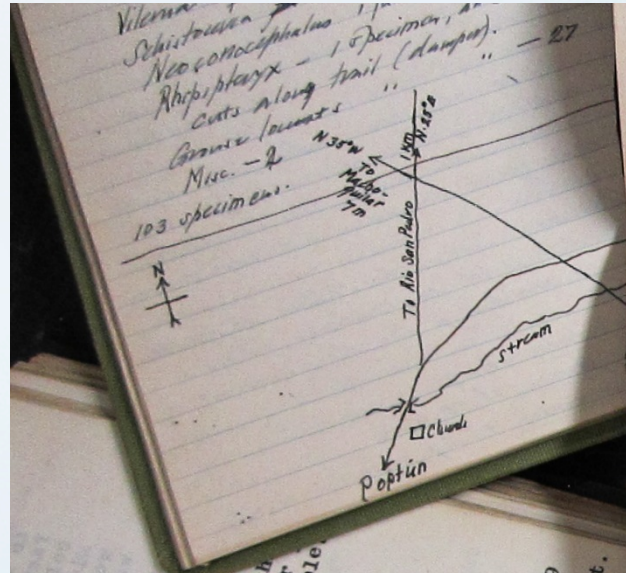 Schistocerca
Neoconocephalus 1
Rhipipteryx - 1 specimen,
cuts along trail (damper).
Grouse locusts " " " - 27
Misc. - 2
103 specimens.
N 35° W
To
Macho-
quilar
7m
1 Km
N. 25° E
To Rio San Pedro
N
stream
Church
Poptún